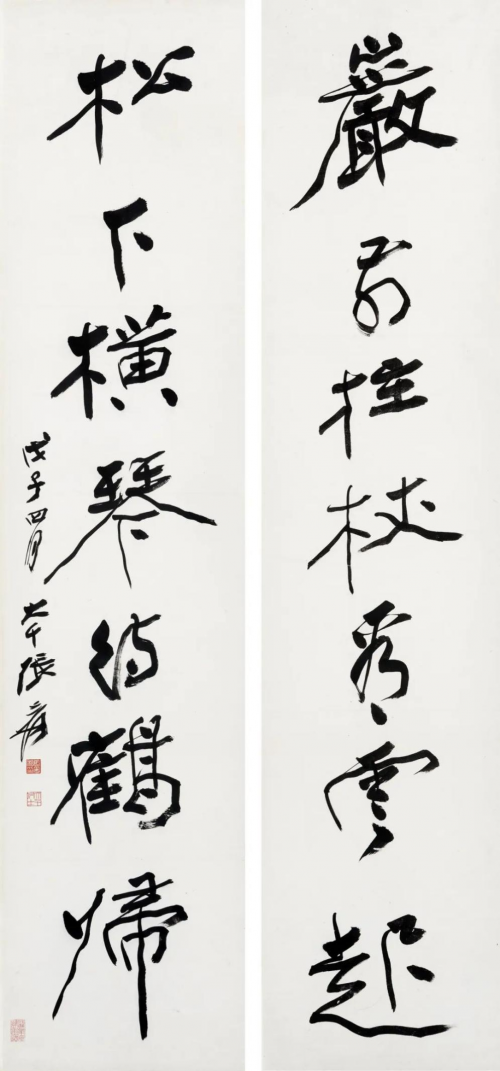 巖前拄杖看雲起
松下橫琴待鶴歸
戊子四月
大千張爰